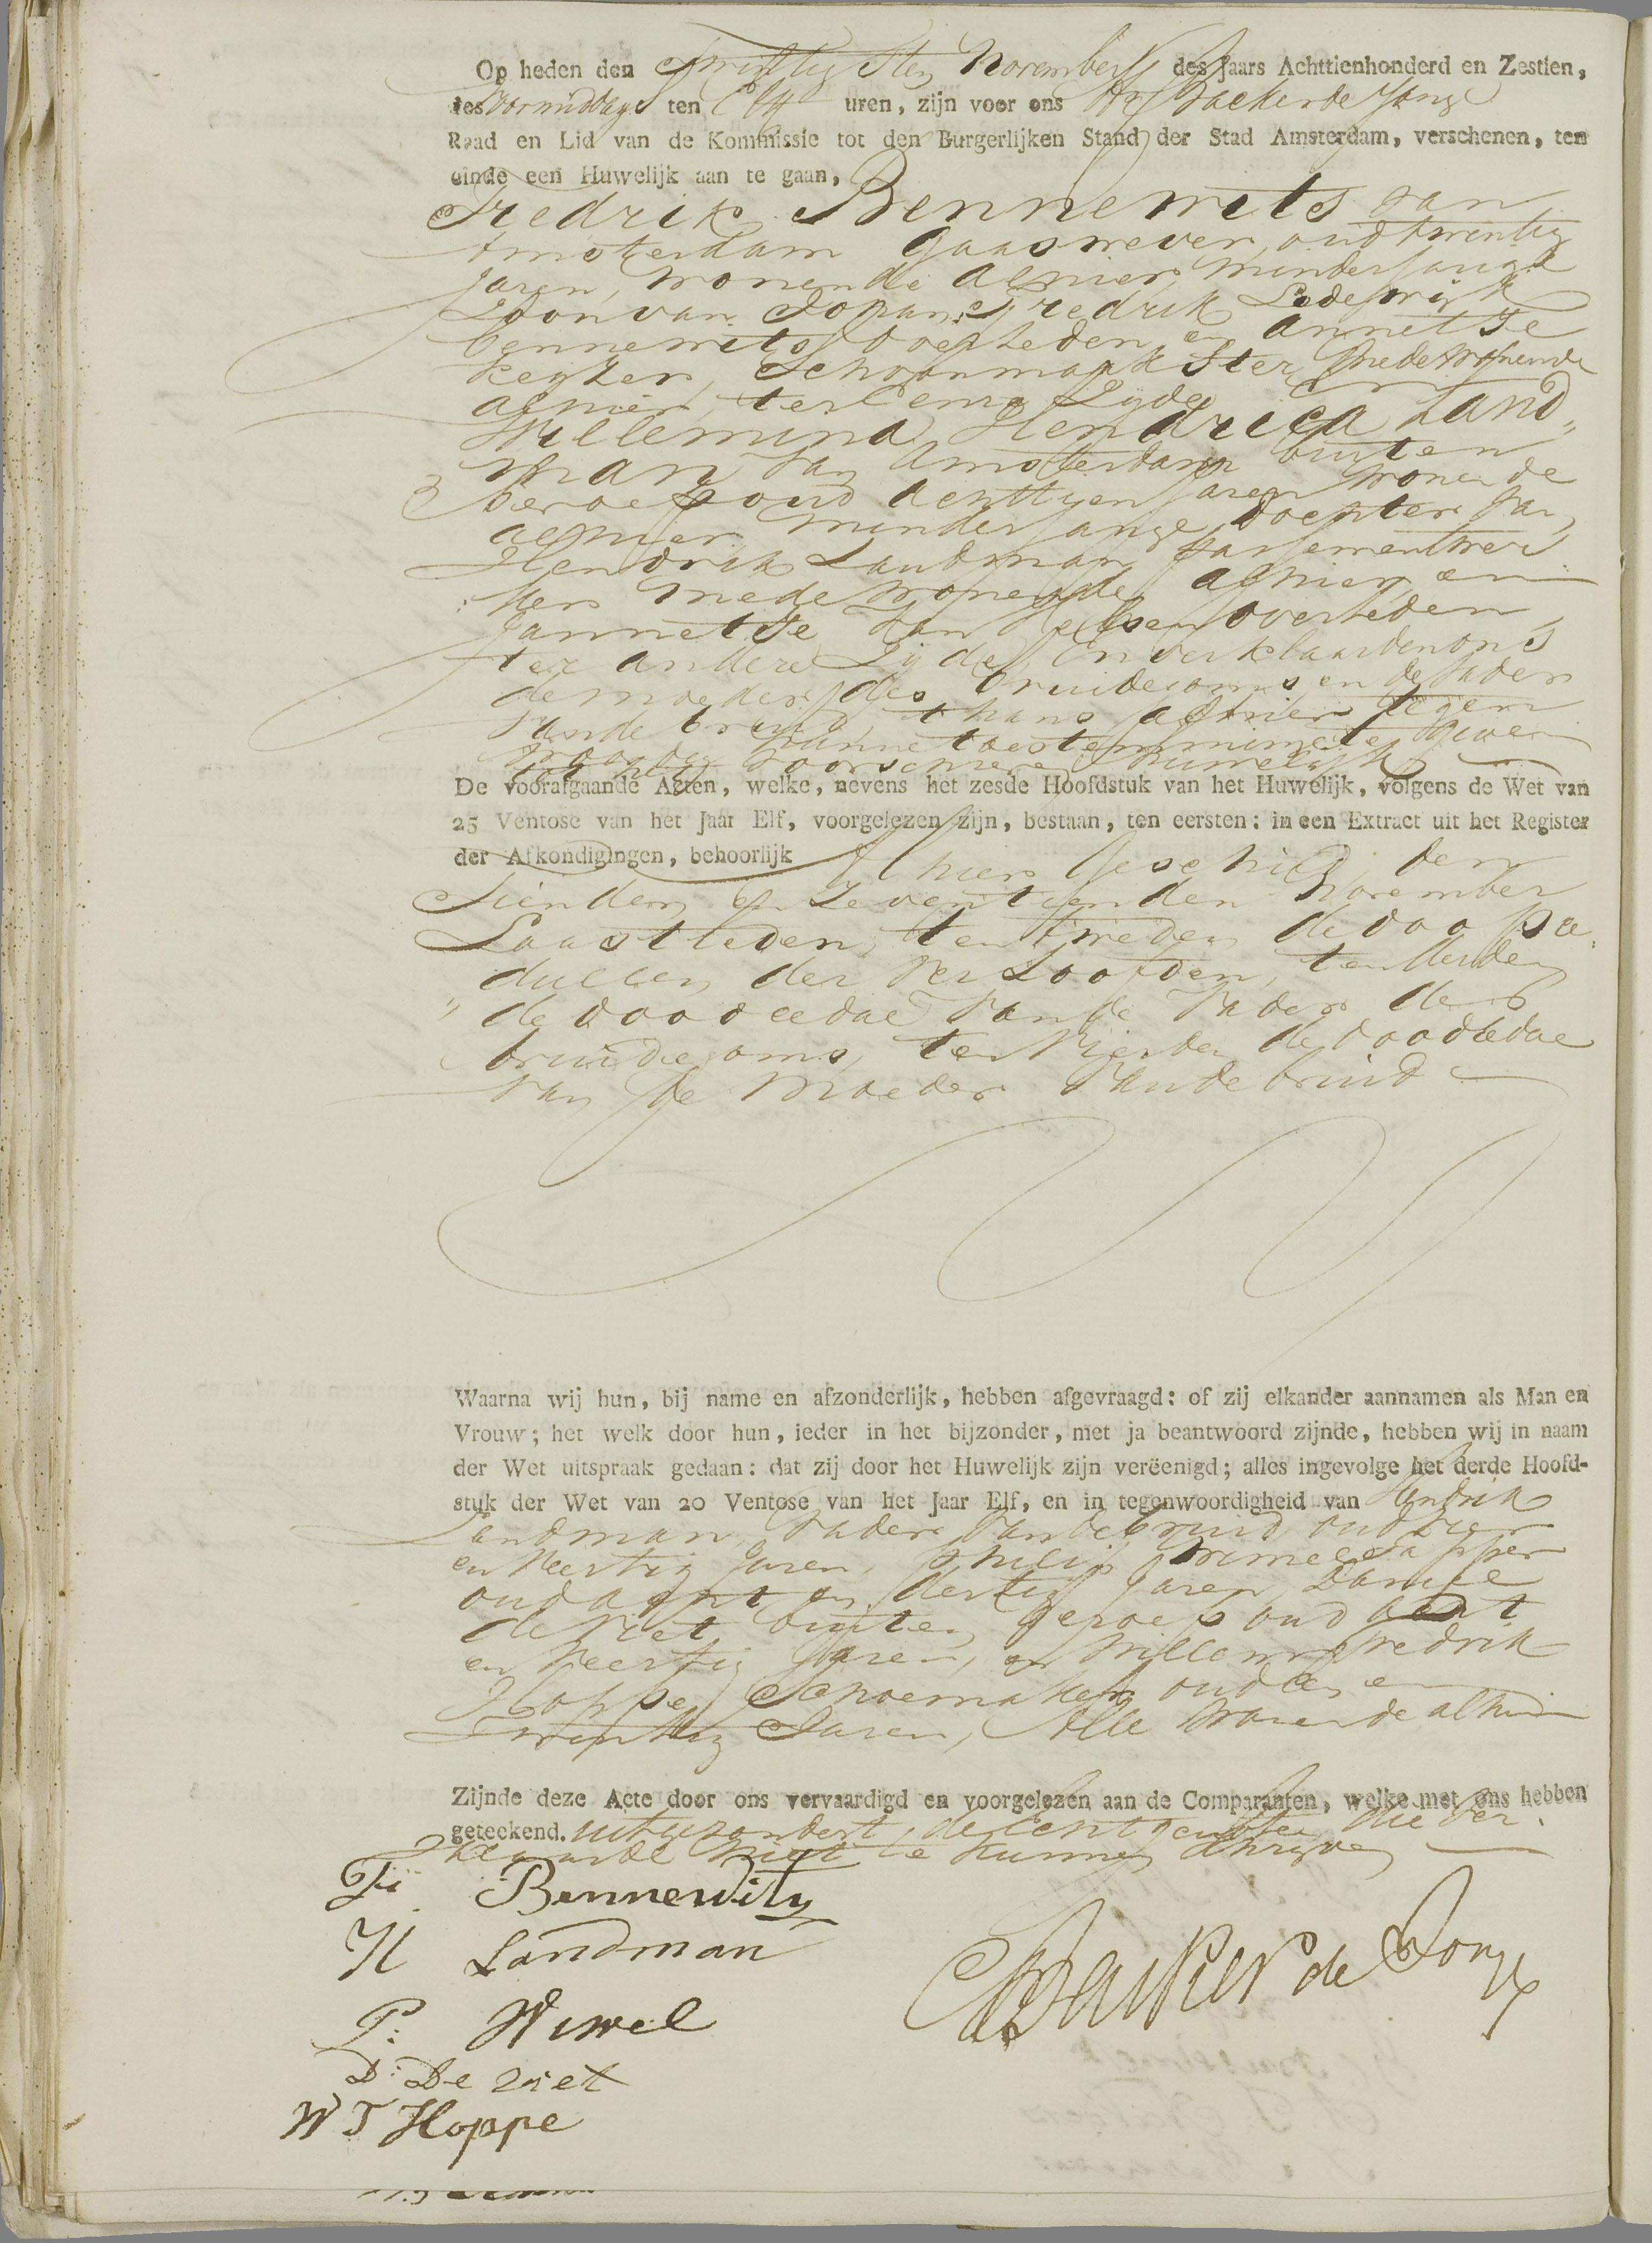 Op heden den Twintigsten November des Jaars Achttienhonderd en Zestien,
des voormiddags ten Elf uren, zijn voor ons Backer de Jonge
Raad en Lid van de Kommissie tot den Burgerlijken Stand der Stad Amsterdam, verschenen, ten
einde een Huwelijk aan te gaan,
Fredrik Bennewits van
Amsterdam gaaswever, oud twintig
Jaren, wonende alhier, minderjarige
Zoon van Johan Fredrik Lodewijk
bennewits overleden, en annetje
Keyzer, Schoonmaakster, mede wonende
alhier, ter eenre Zyde
Willemina Hendrica Land„
man van Amsterdam buiten
beroep oud achttien Jaren wonende
alhier, minderjarige dochter van
Hendrik Landman,
mede wonende alhier, en
Jannetje van overleden
ter andere Zijde, En verklaarden ons
de moeder des bruidegoms, en de vader
van de bruid, thans alhier tegen
hunne toestemming te geven
tot het voorschreven huwelijk
De voorafgaande Acten, welke, nevens het zesde Hoofdstuk van het Huwelijk, volgens de Wet van
25 Ventose van het Jaar Elf, voorgelezen zijn, bestaan, ten eersten: in een Extract uit het Register
der Afkondigingen, behoorlijk
alhier Geschied, den
Tienden en Zeventienden November
Laastleden, ten tweeden de doop ce„
dullen der Verloofden, ten derden
de doodcedul van de Vader des
bruidegoms, ten Vierden de doodcedul
van de Moeder van de bruid
Waarna wij hun, bij name en afzonderlijk, hebben afgevraagd: of zij elkander aannamen als Man en
Vrouw; het welk door hun, ieder in het bijzonder, met ja beantwoord zijnde, hebben wij in naam
der Wet uitspraak gedaan: dat zij door het Huwelijk zijn verëenigd; alles ingevolge het derde Hoofd-
stuk der Wet van 20 Ventose van het Jaar Elf, en in tegenwoordigheid van Hendrik
Landman, Vader van de bruid oud vier
en Veertig Jaren, Philip
oud acht en dertig Jaren, Daniel
de Riet buiten beroep oud acht
en Veertig Jaren, en Willem Fredrik
Hoppe, Schoenmaker, oud en
Twintig Jaren, Alle wonende alhier
Zijnde deze Acte door ons vervaardigd en voorgelezen aan de Comparanten, welke met ons hebben
geteekend. uitgezondert de Echtgenote, die ver„
klaarde niet te kunnen schryven
F: Bennewitz
H Landman
P: Wimel
D: De Riet
W F Hoppe
Backer de Jonge